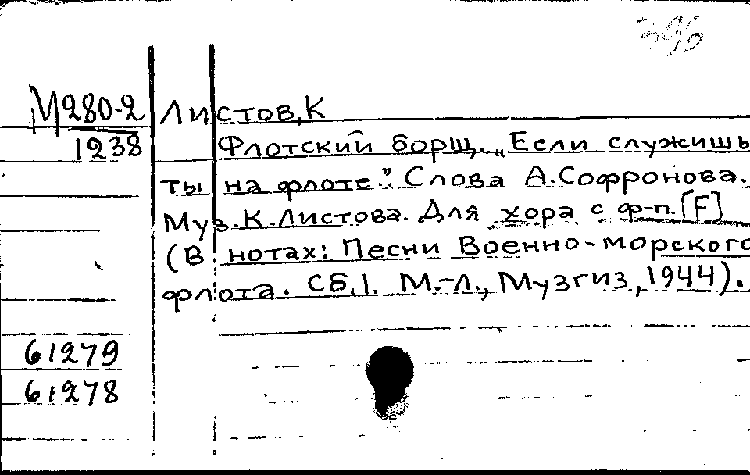 396
М280-2 Листов,К
1238 Флотский борщ. „Если служишь
ты на флоте". Слова А.Софронова.
Муз.К.Листова. Для хора с ф-п.[F]
(В нотах: Песни Военно-морского
флота. Сб,1. М.-Л., Музгиз,1944).
61279
61278